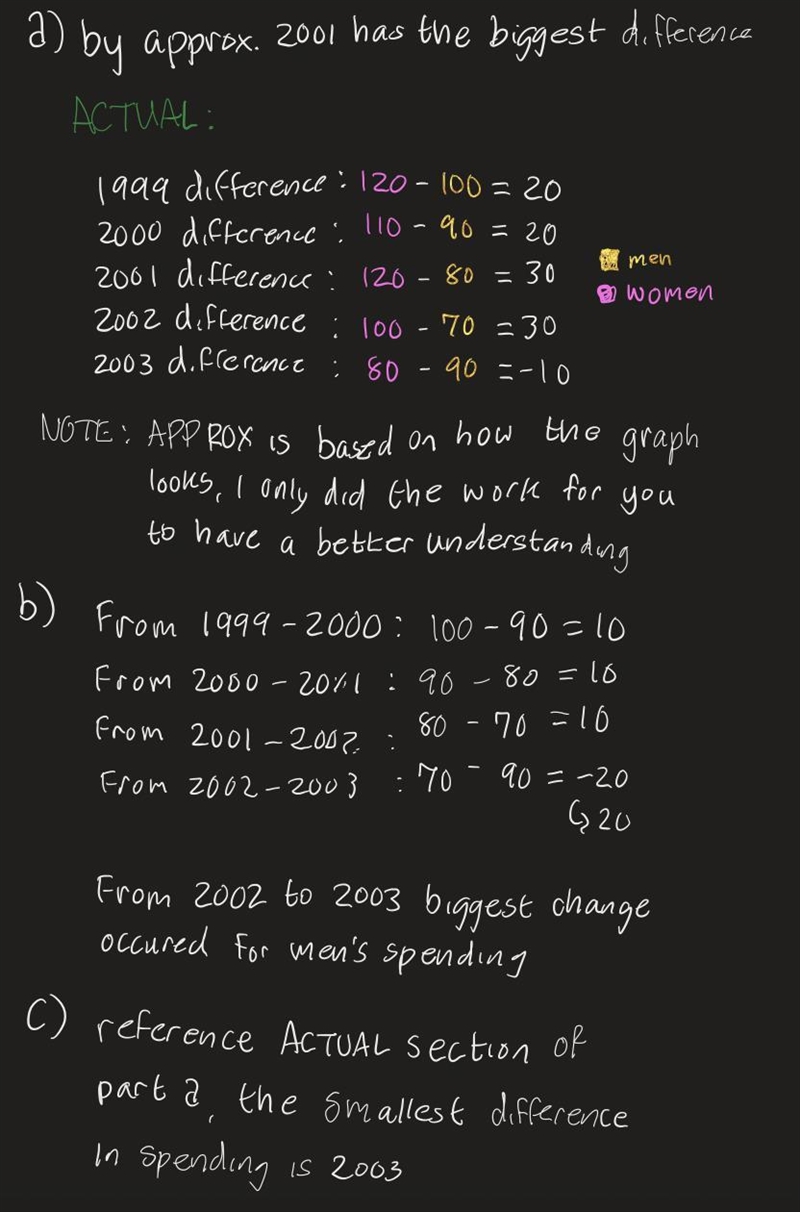 a) by approx. 2001 has the biggest difference
ACTUAL:
1999 difference: 120 - 100 = 20
2000 difference: 110 - 90 = 20
2001 difference: 120 - 80 = 30
men
2002 difference : 100 - 70 = 30
women
2003 difference : 80 - 90 = -10
NOTE: APPROX is based on how the graph
looks, I only did the work for you
to have a better understanding
b) From 1999 - 2000: 100 - 90 = 10
From 2000 - 2001 : 90 - 80 = 10
From 2001 - 2002 : 80 - 70 = 10
From 2002 - 2003 : 70 - 90 = -20
↳ 20
From 2002 to 2003 biggest change
occured for men's spending
c) reference ACTUAL section of
part a, the smallest difference
in spending is 2003